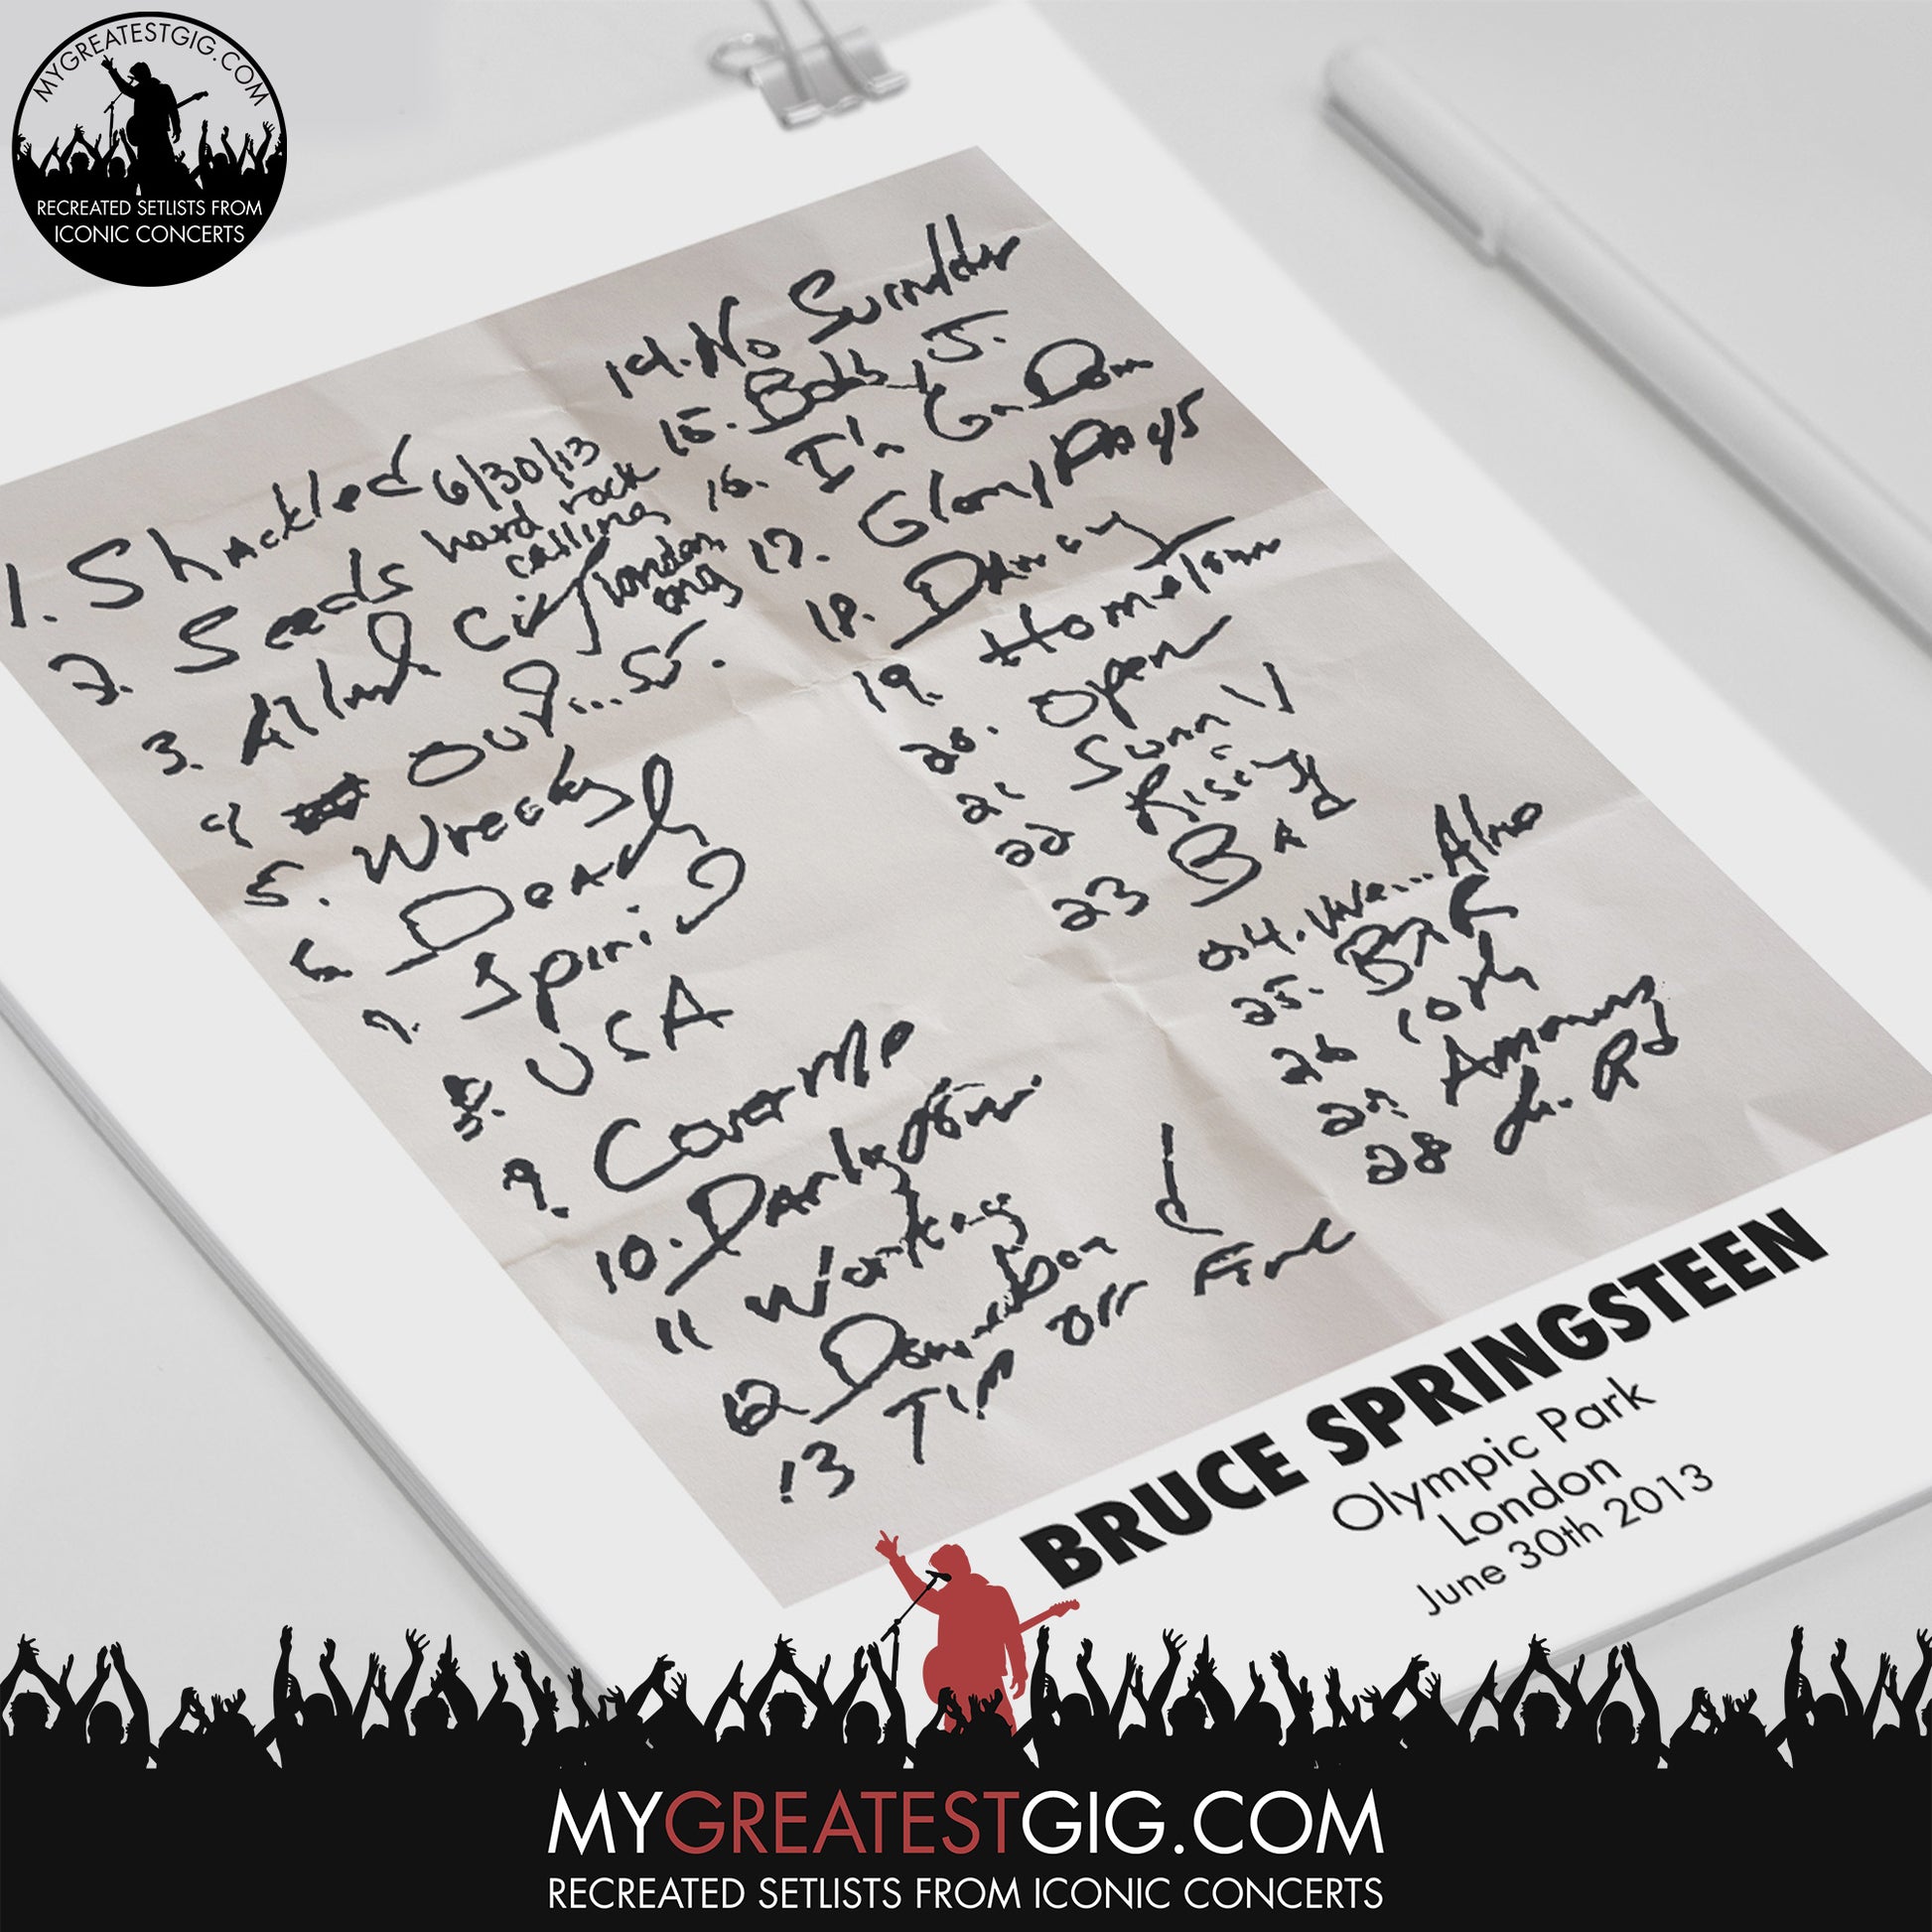 MYGREATESTGIG.COM
RECREATED SETLISTS FROM
ICONIC CONCERTS
1. Shackled
6/30/13
hard rock
calling
london
eng
2. Seeds
3. Atland City
4 Out...St.
5. Wreck
6 Death
7. Spirit
8. USA
9. Cover Me
10. Darlington
11 Working
12 Downbon
13 I'm on Fire
14. No Surrender
15. Bobby J.
16. I'm Gn Down
17. Glory Days
18. Dancing
19. Hometown
20. Open
21 Sunny
22 Rising
23 Bad
24. We...Alive
25. BTR
26 10th
27. Amerland
28 Th. Rd
BRUCE SPRINGSTEEN
Olympic Park
London
June 30th 2013
MYGREATESTGIG.COM
RECREATED SETLISTS FROM ICONIC CONCERTS